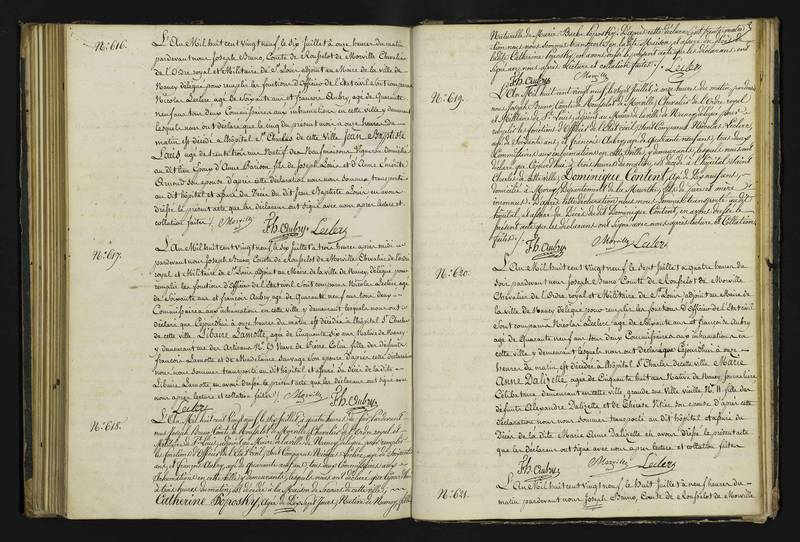 N.º 616.
L'An Mil huit cent vingt neuf le Six juillet à onze heures du matin
pardevant nous Joseph Bruno, Comte de Rousselot de Morville Chevalier
de l'Ordre royal et Militaire de S.t Louis adjoint au Maire de la ville de
Nancy délégué pour remplir les fonctions d'Officier de l'Etat civil sont comparus
Nicolas Leclerc agé de soixante ans et françois Aubry, agé de Quarante
neuf ans tous deux Commissaires aux inhumations en cette ville y demeurant
lesquels nous ont déclaré que le cinq du présent mois à onze heures du
matin est décédé à l'hôpital S.t Charles de cette Ville Jean Baptiste
Louis, agé de trente trois ans Natif de
au dit lieu Epoux d'Anne fils de Joseph Louis et d'Anne
son épouse d'après cette déclaration nous nous sommes transporté
au dit hôpital et assuré du Décès du dit Jean Baptiste Louis en avons
dressé le présent acte que les déclarans ont signé avec nous après lecture et
collation faites. Morville
fh. Aubry Leclerc
N.º 617.
L'An Mil huit cent vingt neuf, le Six juillet à trois heures après midi
pardevant nous Joseph Bruno, Comte de Rousselot de Morville Chevalier de l'ordre
royal et Militaire de S.t Louis adjoint au Maire de la ville de Nancy, délégué pour
remplir les fonctions d'Officier de l'Etat civil sont comparus Nicolas Leclerc agé
de Soixante ans et françois Aubry agé de Quarante neuf ans tous deux
Commissaires aux inhumations en cette ville y demeurant lesquels nous ont
déclaré que Cejourdhui à onze heures du matin est décédée à l'hôpital S.t Charles
de cette ville, Libaire Lamotte, agée de Cinquante Six ans Native de Nancy,
y demeurant rue des Artisans N.º Veuve de Pierre Colin fille des défunts
françois Lamotte et de Madelaine Sauvage son épouse d'après cette déclaration
nous nous sommes transporté au dit hôpital et assuré du décès de la dite
Libaire Lamotte en avons dressé le présent acte que les déclarans ont signé avec
nous après lecture et collation faites. Morville
Leclerc fh. Aubry
N.º 618.
L'An Mil huit Cent vingt neuf, le Six juillet à quatre heures du soir pardevant
nous Joseph Bruno, Comte de Rousselot de Morville, Chevalier de l'Ordre royal et
Militaire de S.t Louis, adjoint au Maire de la ville de Nancy, délégué pour remplir
les fonctions d'Officier de l'Etat Civil, sont Comparus Nicolas Leclerc, agé de Soixante
ans, et François Aubry, agé de Quarante neuf ans, tous deux Commissaires aux
Inhumations en cette Ville, y demeurants, lesquels nous ont déclaré que Cejourdhui
à trois heures du matin, est décédée à la Maison de Secours de cette ville,
Catherine Poposky, agée de Dix Sept Jours, Native de Nancy, fille
Naturelle de Marie Barbe Poposky. D'après cette déclaration
nous nous sommes transporté en ladite Maison, et assuré du Décès de
ladite Catherine Poposky, en avons dressé le présent acte que les déclarans ont
signé avec nous après Lecture et collation faites. Leclerc
fh. Aubry Morville
N.º 619.
L'An Mil huit cent vingt neuf, le Sept juillet, à onze heures du matin, pardevant
nous Joseph Bruno, Comte de Rousselot de Morville, Chevalier de l'Ordre royal
et Militaire de S.t Louis, adjoint au Maire de la ville de Nancy, délégué pour
remplir les fonctions d'Officier de l'Etat Civil, sont Comparus Nicolas Leclerc,
agé de Soixante ans, et François Aubry, agé de Quarante neuf ans, tous deux
Commissaires aux inhumations en cette ville, y demeurants, lesquels nous ont
déclaré que Cejourdhui à trois heures du matin, est décédé à l'hôpital Saint
Charles de cette ville, Dominique Content, agé de neuf ans,
domicilié à Nancy, Département de la Meurthe, fils de père et mère
inconnus. D'après cette déclaration nous nous sommes transporté audit
hôpital, et assuré du Décès dudit Dominique Content, en avons dressé le
présent acte que les déclarans ont signé avec nous après Lecture et Collation
faites.
fh. Aubry Morville Leclerc
N.º 620.
L'An Mil huit cent vingt neuf, le Sept juillet à quatre heures du
soir pardevant nous Joseph Bruno, Comte de Rousselot de Morville
Chevalier de l'Ordre royal et Militaire de S.t Louis, adjoint au Maire de
la ville de Nancy délégué pour remplir les fonctions d'Officier de l'Etat civil
sont comparus Nicolas Leclerc, agé de Soixante ans et françois Aubry
agé de Quarante neuf ans tous deux Commissaires aux inhumations en
cette ville y demeurant lesquels nous ont déclaré que Cejourdhui à onze
heures du matin est décédée à l'hôpital S.t Charles de cette ville Marie
Anne Dalizette, agée de Cinquante huit ans Native de Nancy, Journalière
Célibataire, demeurant en cette ville, grande rue Ville vieille N.º 11 fille des
défunts Alexandre Dalizette et de son épouse d'après cette
déclaration nous nous sommes transporté au dit hôpital et assuré du
Décès de la dite Marie Anne Dalizette en avons dressé le présent acte
que les déclarans ont signé avec nous après lecture et collation faites
fh. Aubry Morville Leclerc
N.º 621.
L'An Mil huit cent vingt neuf, le Huit Juillet à neuf heures du
matin pardevant nous Joseph Bruno, Comte de Rousselot de Morville